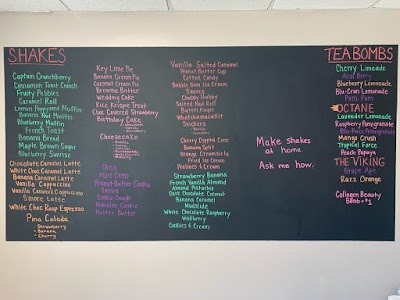 SHAKES
Captain Crunchberry
Cinnamon Toast Crunch
Fruity Pebbles
Caramel Roll
Lemon Poppyseed Muffin
Banana Nut Muffin
Blueberry Muffin
French Toast
Banana Bread
Maple Brown Sugar
Blueberry Sunrise
Chocolate Caramel Latte
White Choc Caramel Latte
Vanilla Cappuccino
Vanilla Caramel Cappuccino
S'more Latte
White Choc Rasp Espresso
Pina Colada
- Strawberry
- Banana
- Cherry
Key Lime Pie
Banana Cream Pie
Coconut Cream Pie
Brownie Batter
Wedding Cake
Rice Krispie Treat
Choc Covered Strawberry
Birthday Cake
Cheesecake
Oreo
Mint Oreo
Peanut Butter Cookie
Samoa
Cookie Dough
Monster Cookie
Nutter Butter
Vanilla Salted Caramel
Peanut Butter Cup
Cotton Candy
Bubble Gum Ice Cream
Smores
Chubby Hubby
Salted Nut Roll
Butterfinger
Whatchamacallit
Snickers
Cherry Dipped Cone
Banana Split
Orange Creamsicle
Fried Ice Cream
Pralines & Cream
Strawberry Banana
French Vanilla Almond
Almond Pistachio
Dark Chocolate Coconut
Banana Caramel
Mudslide
White Chocolate Raspberry
Wallbanger
Cookies & Cream
Make shakes
at home
Ask me how.
TEABOMBS
Cherry Limeade
Acai Berry
Blueberry Lemonade
Blu-Cran Lemonade
Pom Pom
OCTANE
Lavender Lemonade
Raspberry Pomegranate
Blu-Razz Pomegranate
Mango Crush
Tropical Force
Peach Papaya
THE VIKING
Grape Ape
Razz Orange
Collagen Beauty
Bomb #1